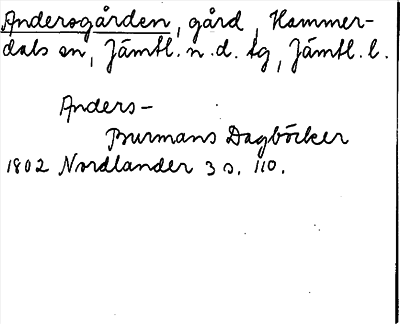 Andersgården, gård, Hammer-
dals sn, Jämtl. n. d. tg, Jämtl. l.
Anders-
Burmans Dagböcker
1802 Nordlander 3 s. 110.